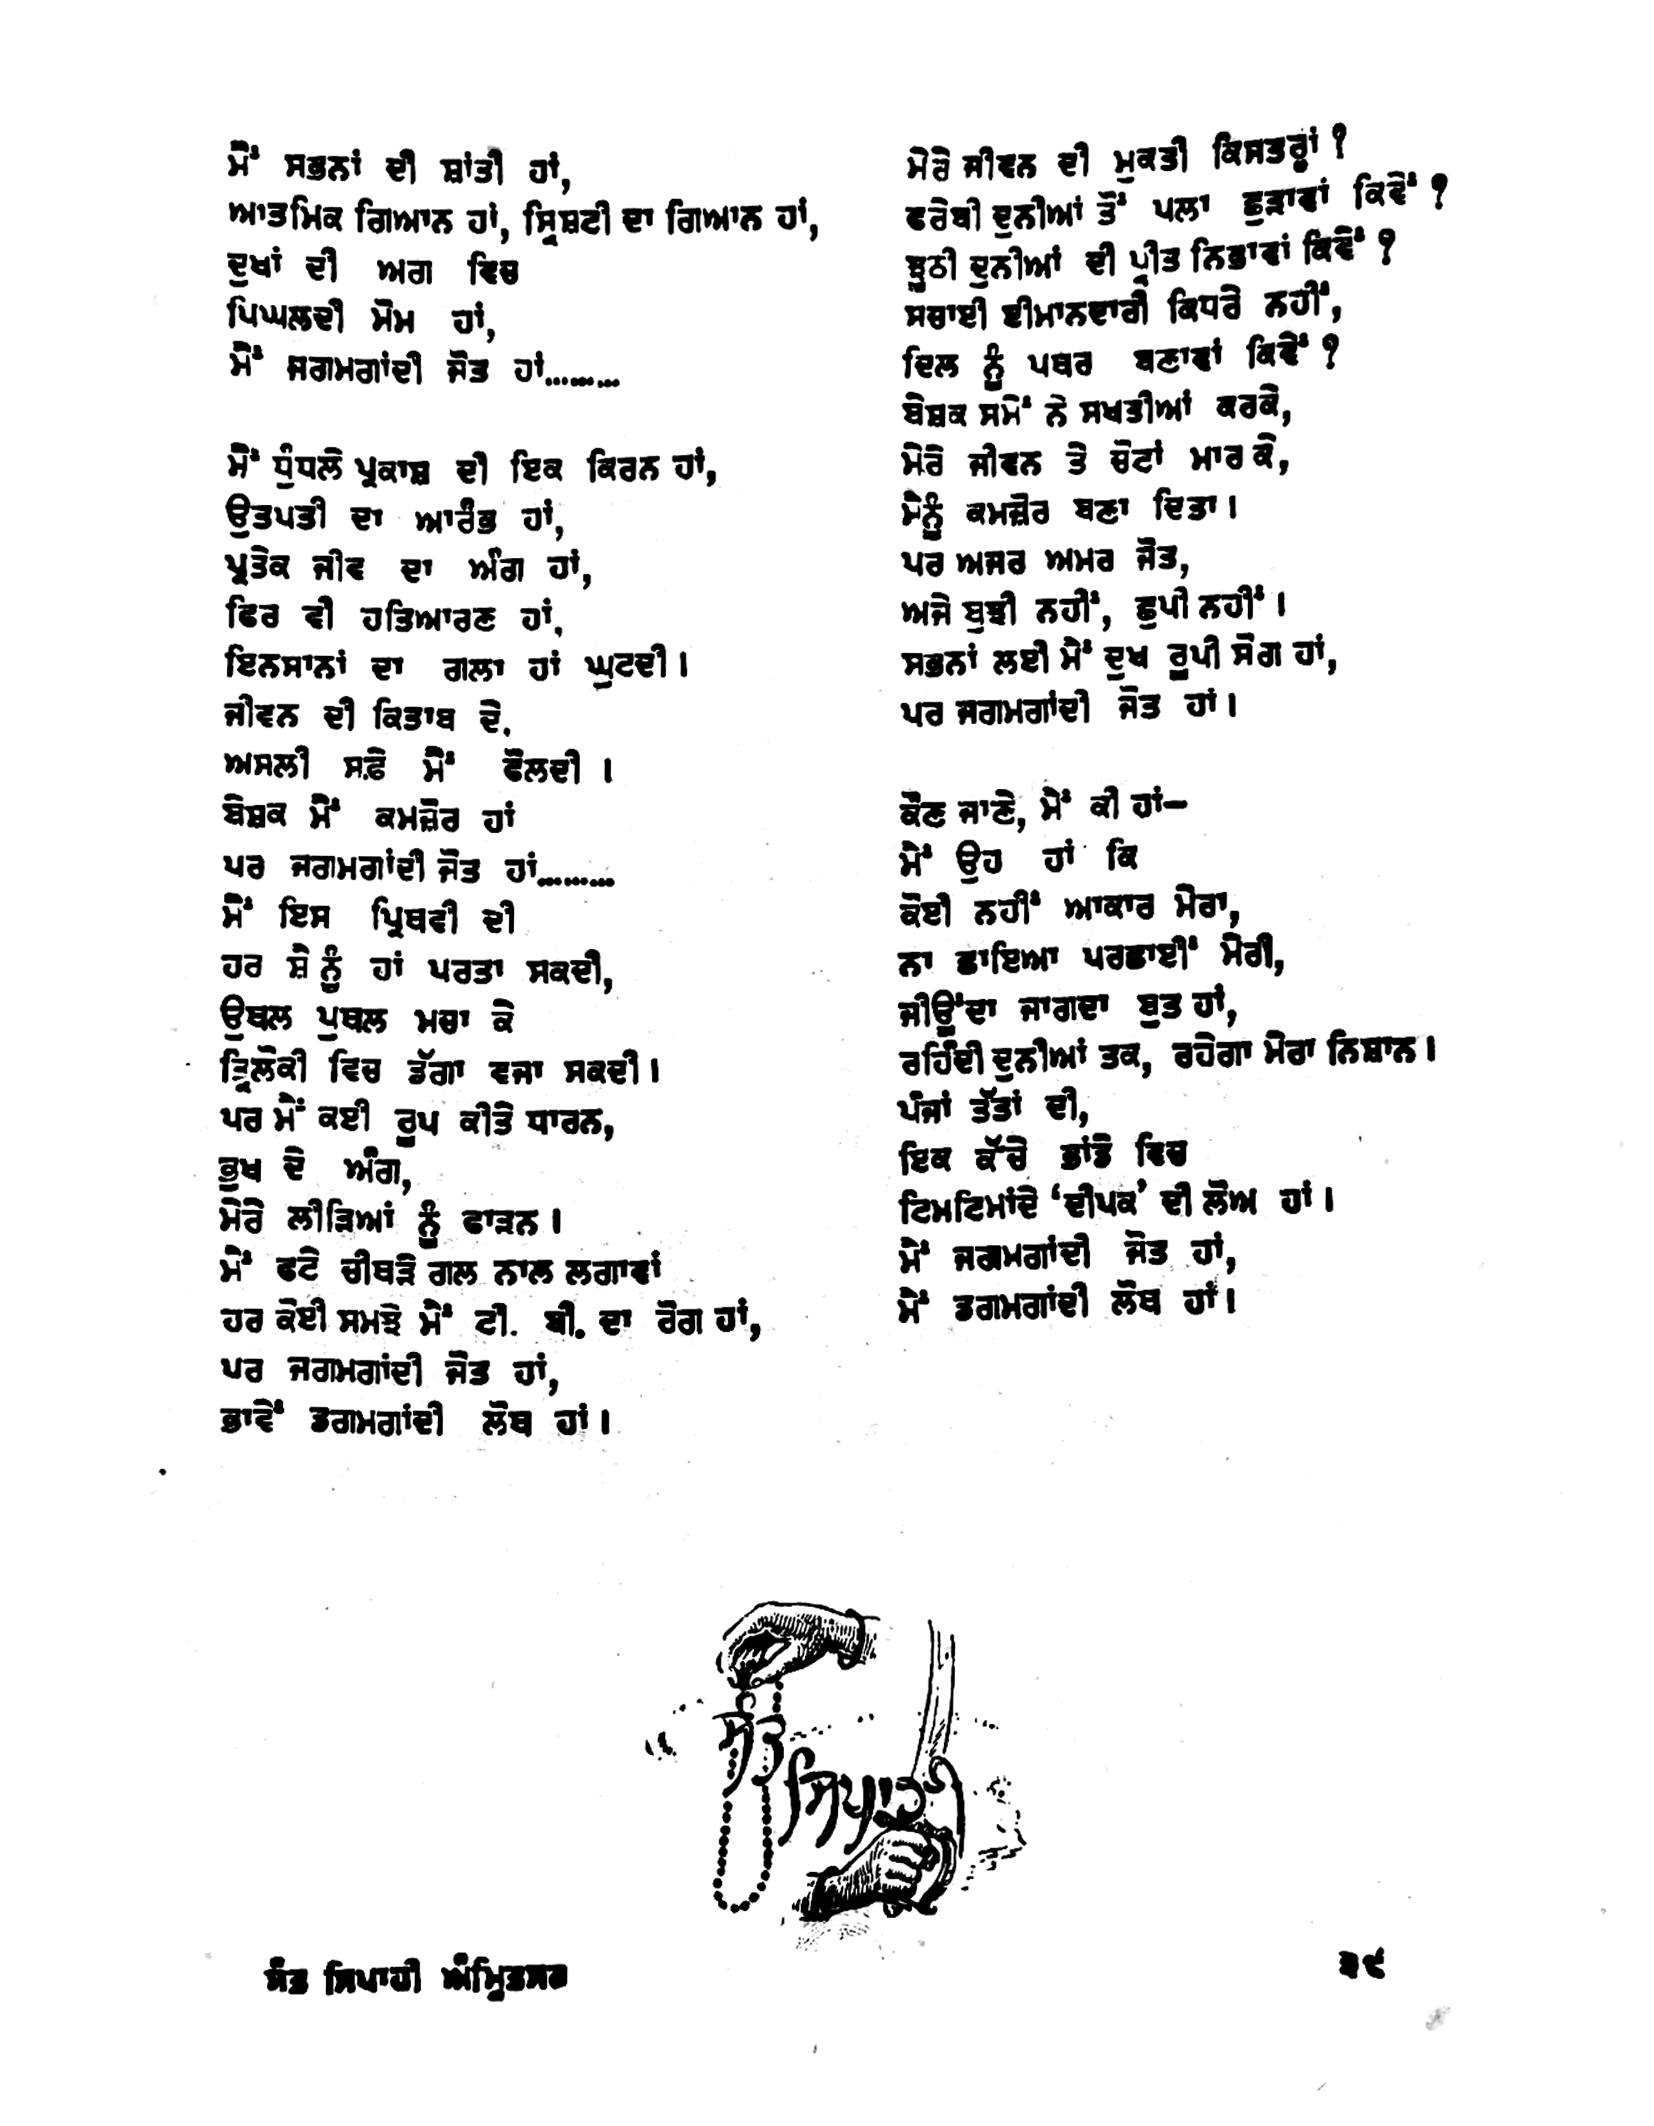 ਮੈਂ ਸਭਨਾਂ ਦੀ ਸ਼ਾਂਤੀ ਹਾਂ,
ਆਤਮਿਕ ਗਿਆਨ ਹਾਂ, ਸ੍ਰਿਸ਼ਟੀ ਦਾ ਗਿਆਨ ਹਾਂ,
ਦੁਖਾਂ ਦੀ ਅਗ ਵਿਚ
ਪਿਘਲਦੀ ਮੋਮ ਹਾਂ,
ਮੈਂ ਜਗਮਗਾਂਦੀ ਜੋਤ ਹਾਂ.........
ਮੈਂ ਧੁੰਧਲੇ ਪ੍ਰਕਾਸ਼ ਦੀ ਇਕ ਕਿਰਨ ਹਾਂ,
ਉਤਪਤੀ ਦਾ ਆਰੰਭ ਹਾਂ,
ਪ੍ਰਤੇਕ ਜੀਵ ਦਾ ਅੰਗ ਹਾਂ,
ਫਿਰ ਵੀ ਹਤਿਆਰਣ ਹਾਂ,
ਇਨਸਾਨਾਂ ਦਾ ਗਲਾ ਹਾਂ ਘੁਟਦੀ।
ਜੀਵਨ ਦੀ ਕਿਤਾਬ ਦੇ,
ਅਸਲੀ ਸਫ਼ੇ ਮੈਂ ਫੋਲਦੀ ।
ਬੇਸ਼ਕ ਮੈਂ ਕਮਜ਼ੋਰ ਹਾਂ
ਪਰ ਜਗਮਗਾਂਦੀ ਜੋਤ ਹਾਂ.........
ਮੈਂ ਇਸ ਪ੍ਰਿਥਵੀ ਦੀ
ਹਰ ਸ਼ੈ ਨੂੰ ਹਾਂ ਪਰਤਾ ਸਕਦੀ,
ਉਥਲ ਪੁਥਲ ਮਚਾ ਕੇ
ਤ੍ਰਿਲੋਕੀ ਵਿਚ ਡੱਗਾ ਵਜਾ ਸਕਦੀ।
ਪਰ ਮੈਂ ਕਈ ਰੂਪ ਕੀਤੇ ਧਾਰਨ,
ਭੁਖ ਦੇ ਅੰਗ,
ਮੇਰੇ ਲੀੜਿਆਂ ਨੂੰ ਫਾੜਨ।
ਮੈਂ ਫਟੇ ਚੀਥੜੇ ਗਲ ਨਾਲ ਲਗਾਵਾਂ
ਹਰ ਕੋਈ ਸਮਝੇ ਮੈਂ ਟੀ. ਬੀ. ਦਾ ਰੋਗ ਹਾਂ,
ਪਰ ਜਗਮਗਾਂਦੀ ਜੋਤ ਹਾਂ,
ਭਾਵੇਂ ਡਗਮਗਾਂਦੀ ਲੋਥ ਹਾਂ।
ਮੇਰੇ ਜੀਵਨ ਦੀ ਮੁਕਤੀ ਕਿਸਤਰ੍ਹਾਂ ?
ਫਰੇਬੀ ਦੁਨੀਆਂ ਤੋਂ ਪਲਾ ਛੁੜਾਵਾਂ ਕਿਵੇਂ ?
ਝੂਠੀ ਦੁਨੀਆਂ ਦੀ ਪ੍ਰੀਤ ਨਿਭਾਵਾਂ ਕਿਵੇਂ ?
ਸਚਾਈ ਈਮਾਨਦਾਰੀ ਕਿਧਰੇ ਨਹੀਂ,
ਦਿਲ ਨੂੰ ਪਥਰ ਬਣਾਵਾਂ ਕਿਵੇਂ ?
ਬੇਸ਼ਕ ਸਮੇਂ ਨੇ ਸਖਤੀਆਂ ਕਰਕੇ,
ਮੇਰੇ ਜੀਵਨ ਤੇ ਚੋਟਾਂ ਮਾਰ ਕੇ,
ਮੈਨੂੰ ਕਮਜ਼ੋਰ ਬਣਾ ਦਿਤਾ।
ਪਰ ਅਜਰ ਅਮਰ ਜੋਤ,
ਅਜੇ ਬੁਝੀ ਨਹੀਂ, ਛੁਪੀ ਨਹੀਂ।
ਸਭਨਾਂ ਲਈ ਮੈਂ ਦੁਖ ਰੂਪੀ ਸੋਗ ਹਾਂ,
ਪਰ ਜਗਮਗਾਂਦੀ ਜੋਤ ਹਾਂ।
ਕੌਣ ਜਾਣੇ, ਮੈਂ ਕੀ ਹਾਂ—
ਮੈਂ ਉਹ ਹਾਂ ਕਿ
ਕੋਈ ਨਹੀਂ ਆਕਾਰ ਮੇਰਾ,
ਨਾ ਛਾਇਆ ਪਰਛਾਈਂ ਮੇਰੀ,
ਜੀਊਂਦਾ ਜਾਗਦਾ ਬੁਤ ਹਾਂ,
ਰਹਿੰਦੀ ਦੁਨੀਆਂ ਤਕ, ਰਹੇਗਾ ਮੇਰਾ ਨਿਸ਼ਾਨ।
ਪੰਜਾਂ ਤੱਤਾਂ ਦੀ,
ਇਕ ਕੱਚੇ ਭਾਂਡੇ ਵਿਚ
ਟਿਮਟਿਮਾਂਦੇ ‘ਦੀਪਕ’ ਦੀ ਲੋਅ ਹਾਂ।
ਮੈਂ ਜਗਮਗਾਂਦੀ ਜੋਤ ਹਾਂ,
ਮੈਂ ਡਗਮਗਾਂਦੀ ਲੋਥ ਹਾਂ।
ਸੰਤ
ਸਿਪਾਹੀ
ਸੰਤ ਸਿਪਾਹੀ ਅੰਮ੍ਰਿਤਸਰ
੩੯